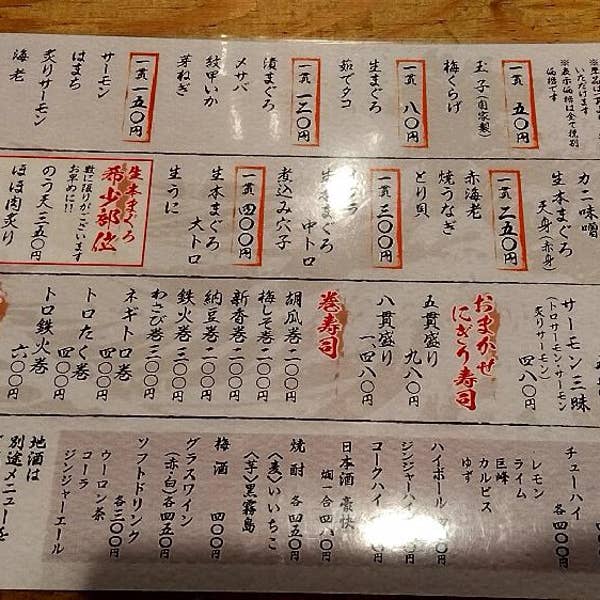 いただけます
※表示価格は全て税別
価格です
一貫 五〇円
玉子(自家製)
梅くらげ
一貫 八〇円
生まぐろ
茹でタコ
一貫 一二〇円
漬まぐろ
メサバ
紋甲いか
芽ねぎ
一貫 一五〇円
サーモン
はまち
炙りサーモン
海老
カニ味噌
生本まぐろ
天身(赤身)
一貫 二五〇円
赤海老
焼うなぎ
とり貝
一貫 三〇〇円
中トロ
煮込み穴子
一貫 四〇〇円
生本まぐろ
大トロ
生うに
生本まぐろ
希少部位
数に限りがございます
お早めに!!
のう天 三五〇円
ほほ肉炙り
サーモン三昧
(トロサーモン・サーモン
炙りサーモン)
四八〇円
おまかせ
にぎり寿司
五貫盛り
九八〇円
八貫盛り
一、四八〇円
巻寿司
胡瓜巻 二〇〇円
梅しそ巻 二〇〇円
新香巻 二〇〇円
納豆巻 二〇〇円
鉄火巻 三〇〇円
わさび巻 三〇〇円
ネギトロ巻
四〇〇円
トロたく巻
四〇〇円
トロ鉄火巻
六〇〇円
チューハイ
各四〇〇円
・レモン
ライム
巨峰
カルピス
ゆず
ハイボール
ジンジャーハイ
コークハイ
日本酒 豪快
燗一合 四八〇円
焼酎 各四五〇円
〈麦〉いいちこ
〈芋〉黒霧島
梅酒 四〇〇円
グラスワイン
(赤・白)各四五〇円
ソフトドリンク
各三〇〇円
ウーロン茶
コーラ
ジンジャーエール
地酒は
別途メニューを